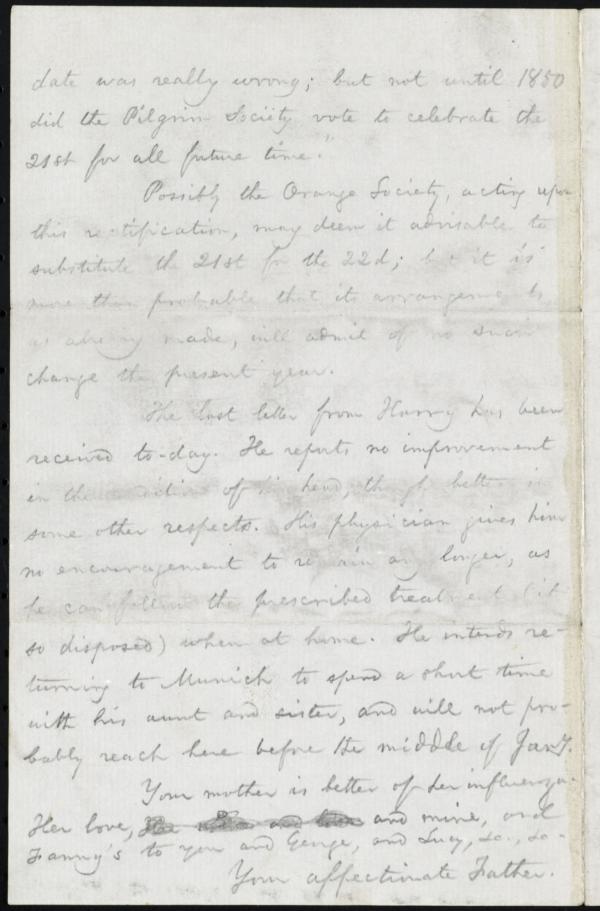 date was really wrong; but not until 1850
did the Pilgrim Society vote to celebrate the
21st for all future time."
Possibly the Orange Society, acting upon
this rectification, may deem it advisable to
substitute the 21st for the 22d; but it is
more than probable that its arrangements,
as already made, will admit of no such
change the present year.
The last letter from Harry has been
received to-day. He reports no improvement
in the condition of his head, though better in
some other respects. His physician gives him
no encouragement to remain any longer, as
he can follow the prescribed treatment (if
so disposed) when at home. He intends re-
turning to Munich to spend a short time
with his aunt and sister, and will not pro-
bably reach here before the middle of Jan'y.
Your mother is better of her influenza.
Her love, and mine, and
Fanny's to you and George, and Lucy, &c., &c.
Your affectionate Father.